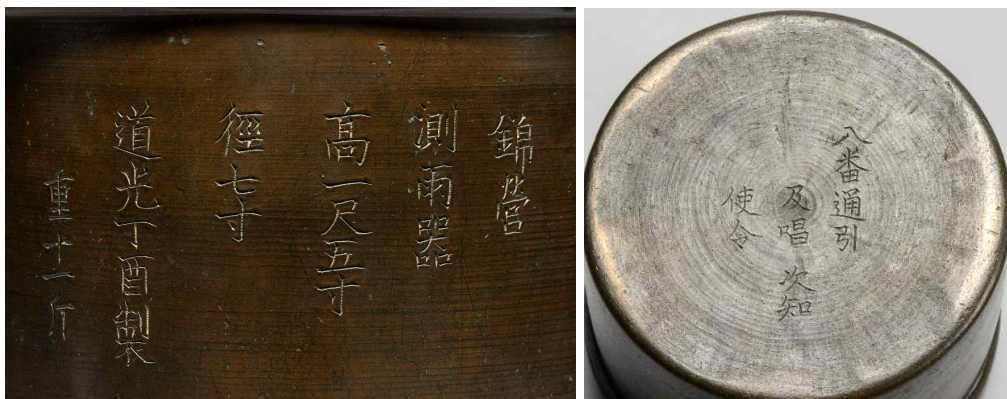 錦營
測雨器
高一尺五寸
徑七寸
道光丁酉製
重十一斤
入番通引
及唱 次知
使令